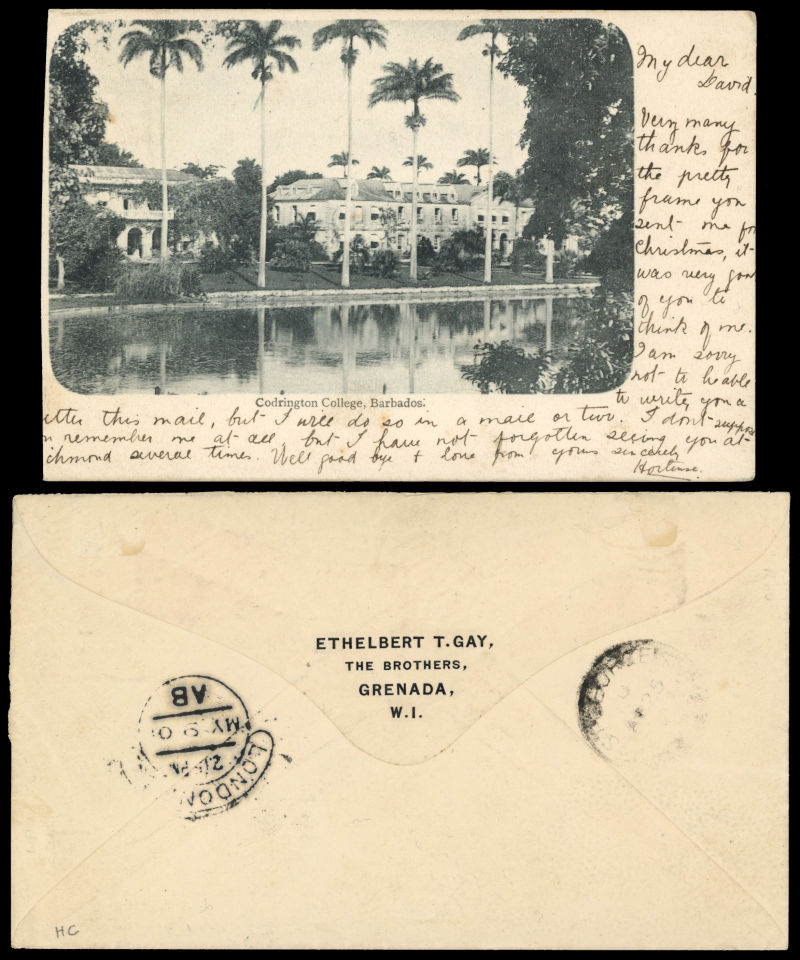 My dear
David.
Very many
thanks for
the pretty
frame you
sent me for
Christmas, it
was very good
of you to
think of me.
I am sorry
not to be able
to write you a
etter this mail, but I will do so in a mail or two. I don't suppose
remember me at all, but I have not forgotten seeing you at
ichmond several times. Well good bye & love from yours sincerely
Hortense.
Codrington College, Barbados.
ETHELBERT T. GAY,
THE BROTHERS,
GRENADA,
W.I.
LONDON
2.15 PM
MY 9 0
AB
AP 25
HC